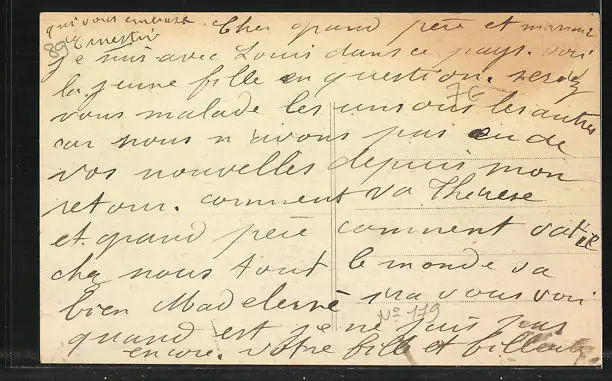 qui vous embrasse
Ernestine
Cher grand père et maman
je suis avec Louis dans ce pays. voir
la jeune fille en question. seriez
vous malade les uns ou les autres
car nous n avons pas eu de
vos nouvelles depuis mon
retour. comment va Thérèse
et grand père comment vat il
chez nous tout le monde va
bien Madeleine ira vous voir
quand est je ne sais pas
encore. votre fille et filleule
76
No 179